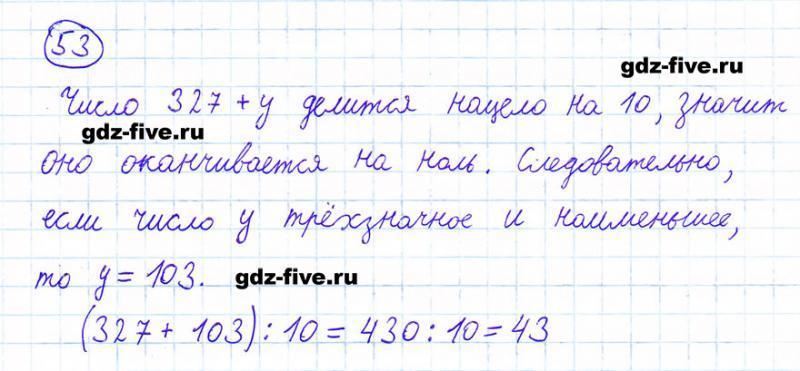 53
gdz-five.ru
Число 327 + y делится нацело на 10, значит
gdz-five.ru
оно оканчивается на ноль. Следовательно,
если число y трёхзначное и наименьшее,
то y = 103.
gdz-five.ru
(327 + 103) : 10 = 430 : 10 = 43